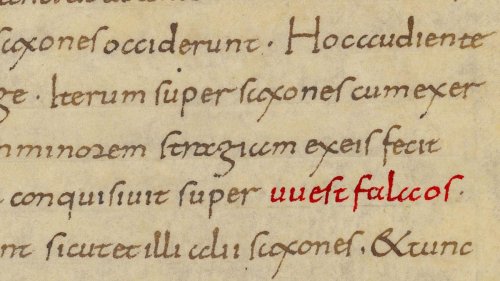 saxones occiderunt. Hoc audiente
ge. Iterum super saxones cum exer
minorem stragiam ex eis fecit
conquisiuit super uuestfalaos.
nt sicut et illi alii saxones. & tunc